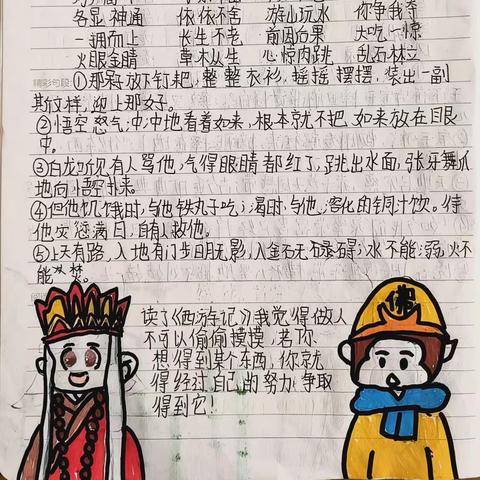 各显神通 依依不舍 游山玩水 你争我夺
一拥而上 长生不老 前因后果 大吃一惊
火眼金睛 草木丛生 心惊肉跳 乱石林立
精彩句段
①那呆子放下钉耙,整整衣衫,摇摇摆摆,装出一副
斯文样,迎上那女子。
②悟空怒气冲冲地看着如来,根本就不把如来放在目眼
中。
③白龙听见有人骂他,气得眼睛都红了,跳出水面,张牙舞爪
地向悟空扑来。
④但他饥饿时,与他铁丸子吃;渴时,与他溶化的铜汁饮。待
他灾愆满日,自有人救他。
⑤上天有路,入地有门步日月无影,入金石无碍;水不能溺,火不
能焚。
读了《西游记》我觉得做人
不可以偷偷摸摸,若你
想得到某个东西,你就
得经过自己的努力争取
得到它!